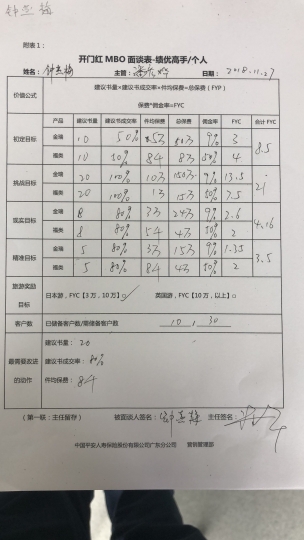 钟志梅
附表1：
开门红MBO面谈表-绩优高手/个人
姓名： 主管： 日期：2018.11.27
价值公式 建议书量×建议书成交率×件均保费=总保费（FYP）
保费*佣金率=FYC
产品 建议书量 建议书成交率 件均保费 总保费 佣金率 FYC 合计FYC
初定目标 金瑞 10 50% 9% 3 8.5
福类 10 50% 8千 8万 50% 4
挑战目标 金瑞 20 100% 10万 150万 9% 13.5 21
福类 20 100% 1万 15万 50% 7.5
现实目标 金瑞 8 80% 3万 24万 9% 2.6 4.16
福类 8 80% 5千 4万 50% 2
精准目标 金瑞 5 80% 3万 15万 9% 1.35 3.5
福类 5 80% 8千 4万 50% 2
旅游奖励目标 日本游，FYC【3万，10万】 英国游，FYC【10万，以上】○
客户数 已储备客户数/需储备客户数 10，30
最需要改进的动作 建议书量：20
建议书成交率：80%
件均保费：8千
（第一联：主任留存） 被面谈人签名： 主任签名：
中国平安人寿保险股份有限公司广东分公司 营销管理部